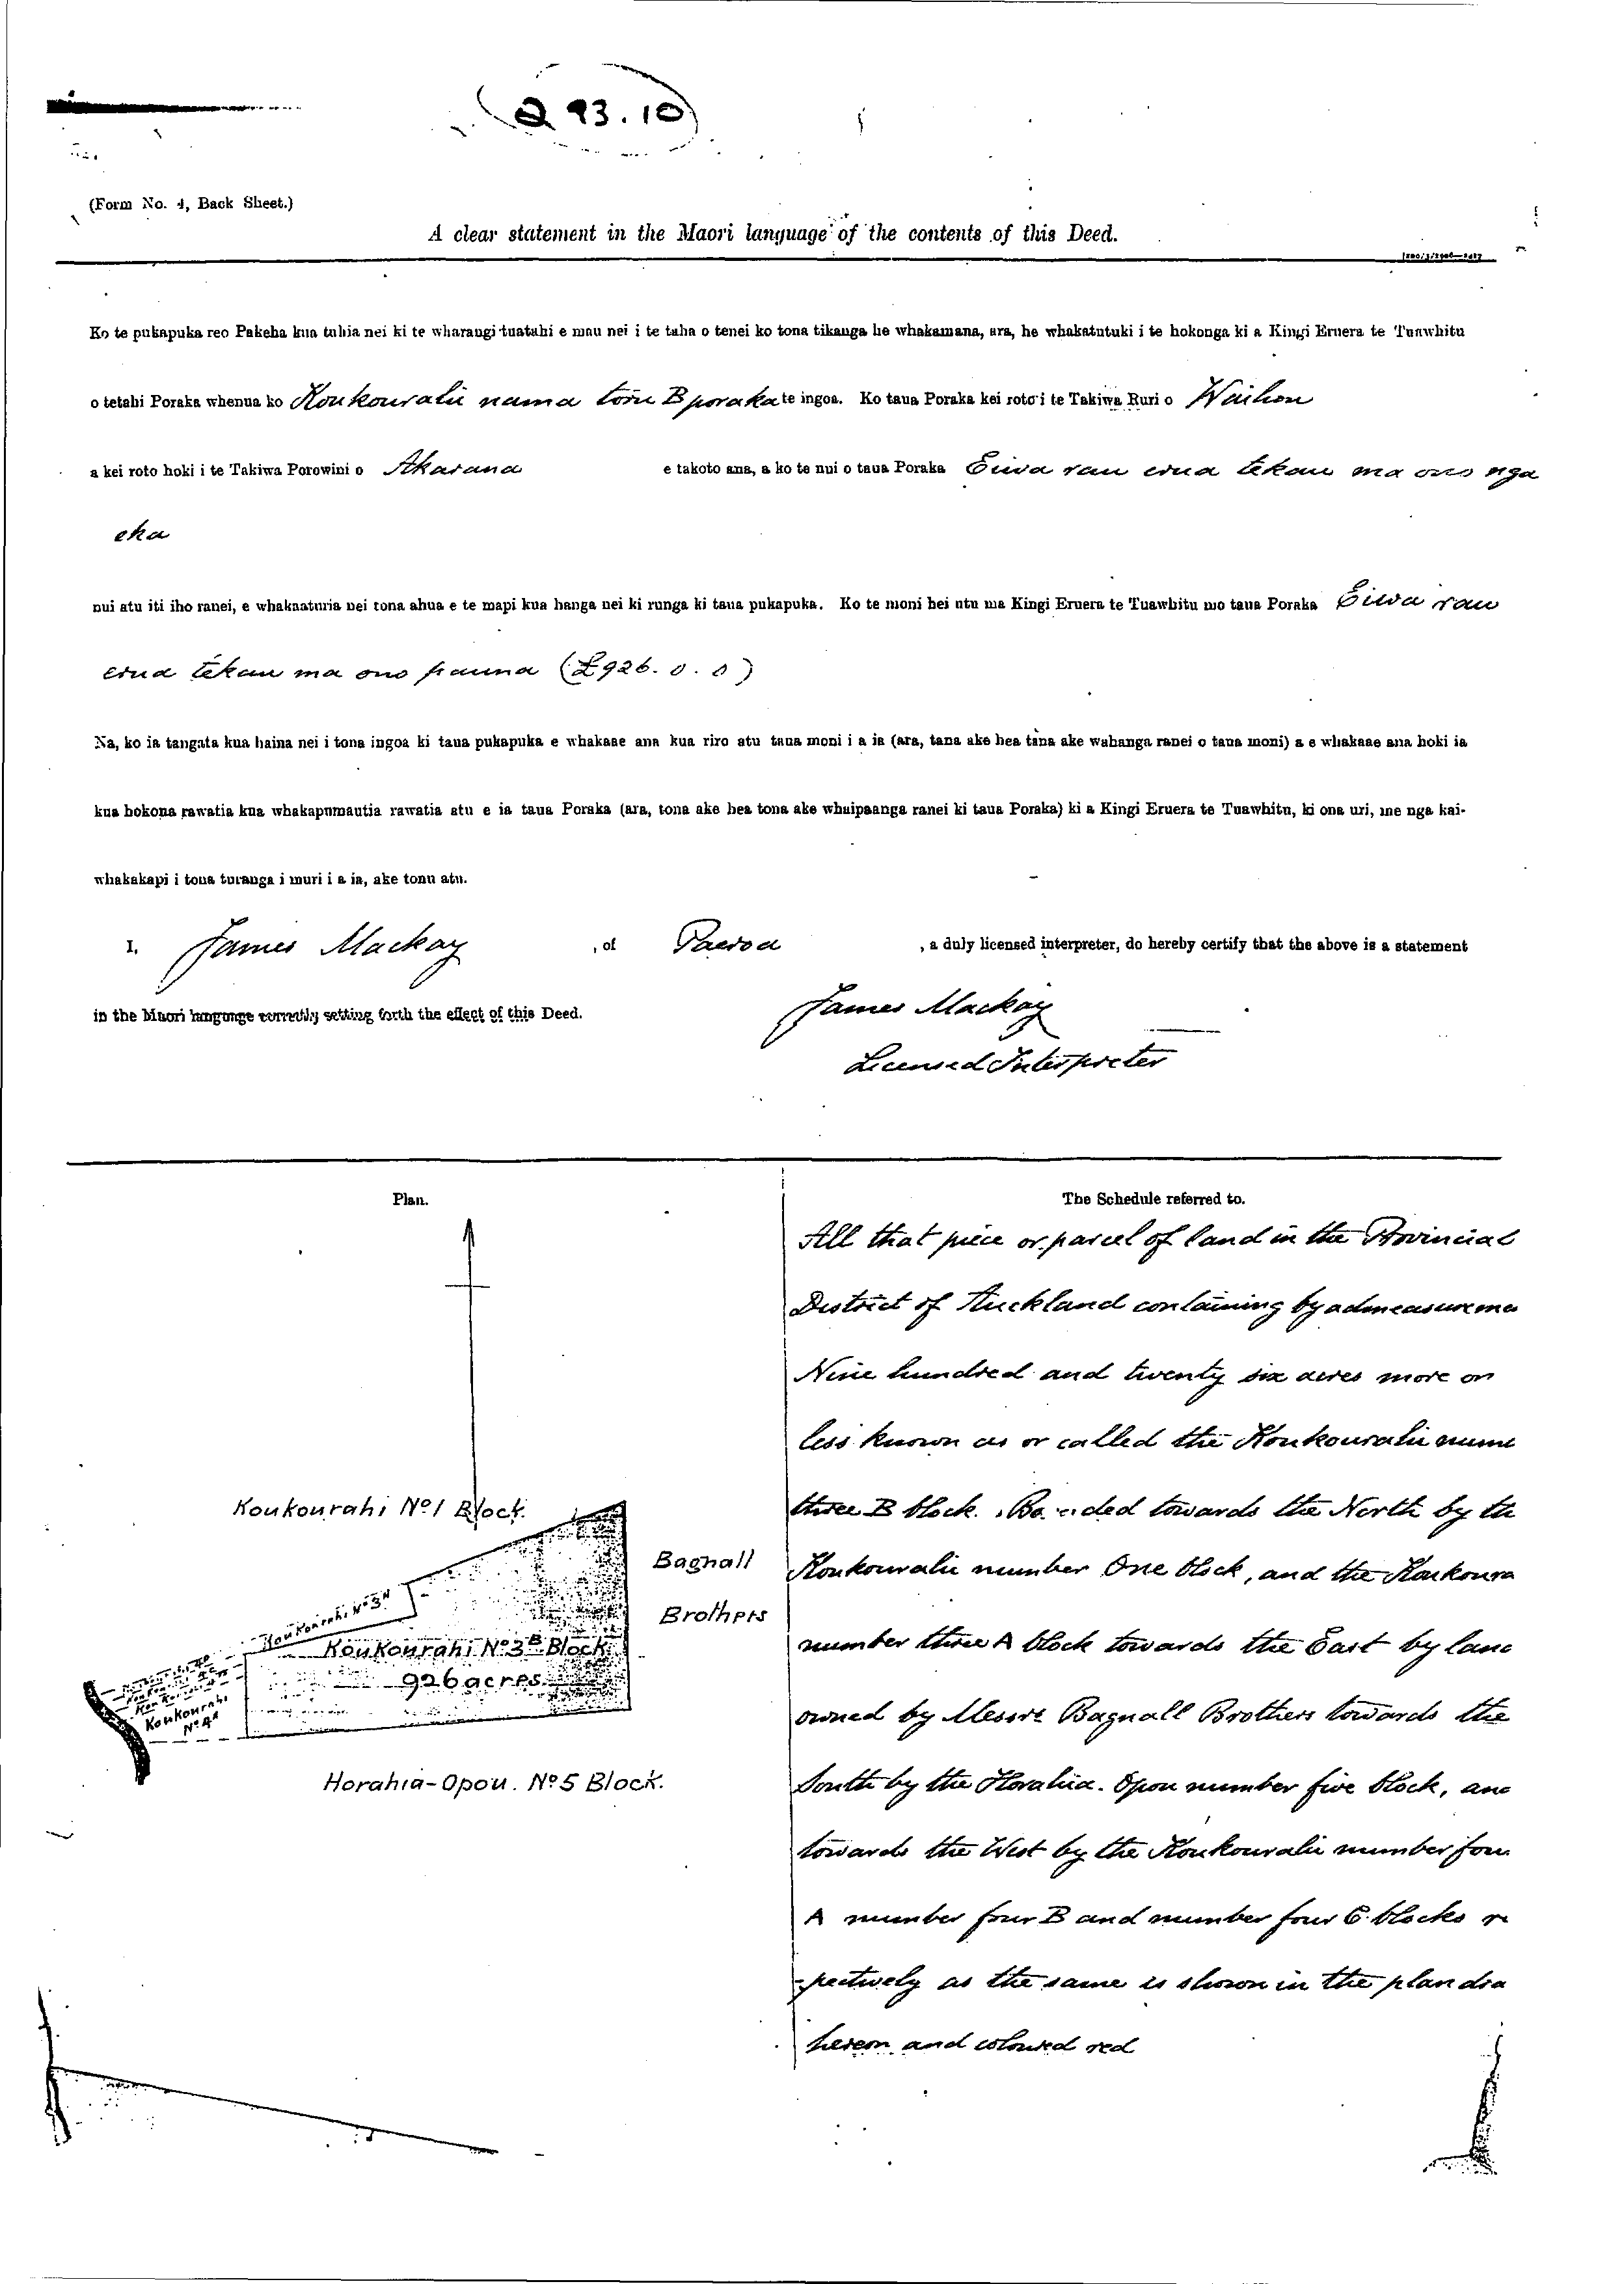 293.10
(Form No. 4, Back Sheet.)
A clear statement in the Maori language of the contents of this Deed.
Ko te pukapuka reo Pakeha kua tuhia nei ki te wharangi tuatahi e mau nei i te taha o tenei ko tona tikanga he whakamana, ara, he whakatutuki i te hokonga ki a Kingi Eruera te Tuawhitu
o tetahi Poraka whenua ko Koukourahi nama toru B poraka te ingoa. Ko taua Poraka kei roto i te Takiwa Ruri o Waihou
a kei roto hoki i te Takiwa Porowini o Akarana e takoto ana, a ko te nui o taua Poraka Eiwa rau erua tekau ma ono nga
eka
nui atu iti iho ranei, e whakaaturia nei tona ahua e te mapi kua hanga nei ki runga ki taua pukapuka. Ko te moni hei utu ma Kingi Eruera te Tuawhitu mo taua Poraka Eiwa rau
erua tekau ma ono pauna (£926. 0. 0)
Na, ko ia tangata kua haina nei i tona ingoa ki taua pukapuka e whakaae ana kua riro atu taua moni i a ia (ara, tana ake hea tana ake wahanga ranei o taua moni) a e whakaae ana hoki ia
kua hokona rawatia kua whakapumautia rawatia atu e ia taua Poraka (ara, tona ake hea tona ake whaipaanga ranei ki taua Poraka) ki a Kingi Eruera te Tuawhitu, ki ona uri, me nga kai-
whakakapi i tona turanga i muri i a ia, ake tonu atu.
I, James Mackay , of Paeroa , a duly licensed interpreter, do hereby certify that the above is a statement
in the Maori language correctly setting forth the effect of this Deed.
James Mackay
Licensed Interpreter
Plan.
Koukourahi No 1 Block.
Bagnall
Brothers
Koukourahi No 3A
Koukourahi No 3B Block
926 acres
Koukourahi
No 4A
Horahia-Opou. No 5 Block.
The Schedule referred to.
All that piece or parcel of land in the Provincial
District of Auckland containing by admeasureme
Nine hundred and twenty six acres more or
less known as or called the Koukourahi num
three B block. Bo ded towards the North by th
Koukourahi number One block, and the Koukoura
number three A block towards the East by lan
owned by Messrs Bagnall Brothers towards the
South by the Horahia-Opou number five block, an
towards the West by the Koukourahi number fou
A number four B and number four C blocks r
-pectively as the same is shown in the plan dra
hereon and coloured red